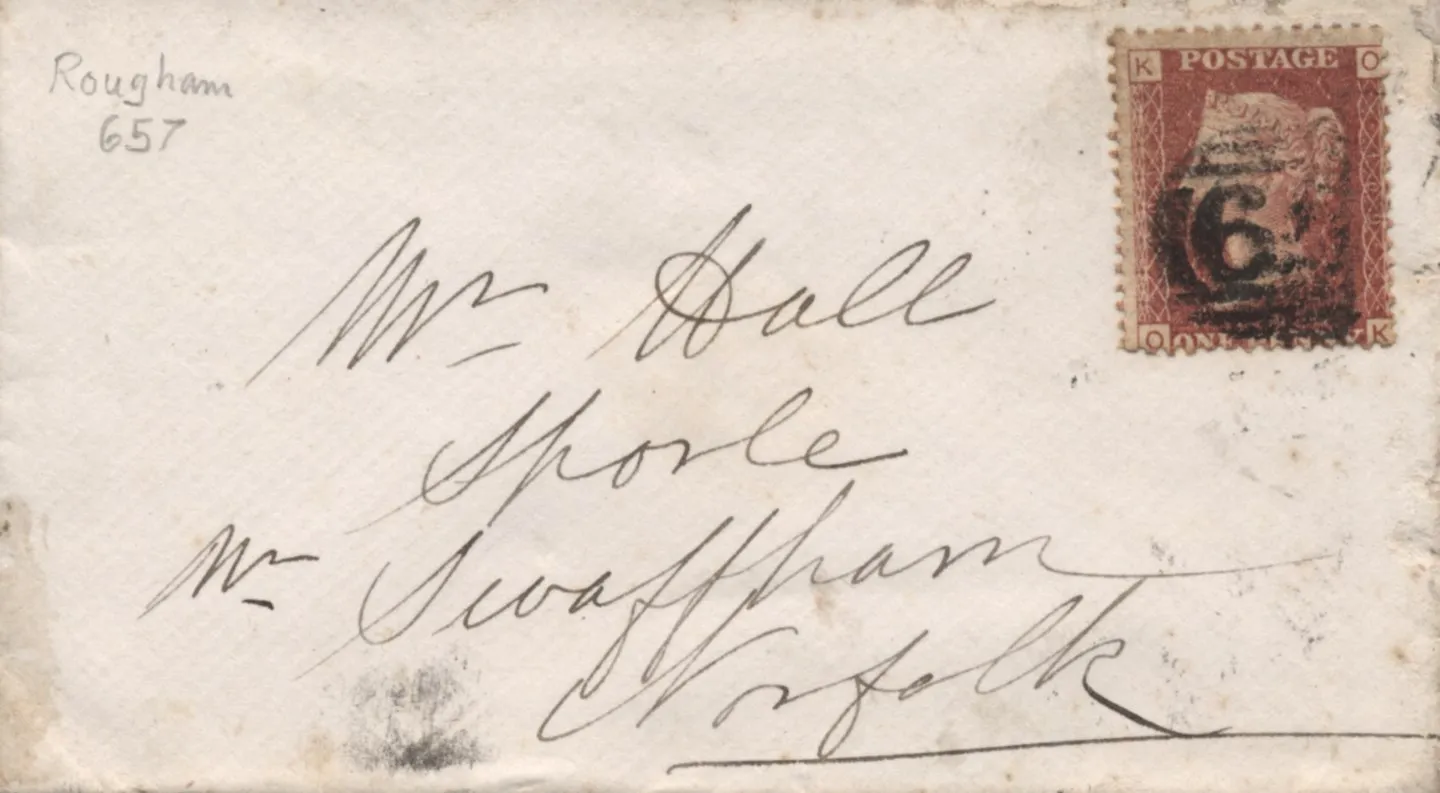 Rougham
657
K POSTAGE O
O ONE PENNY K
6
Mr Hall
Sporle
Nr Swaffham
Norfolk